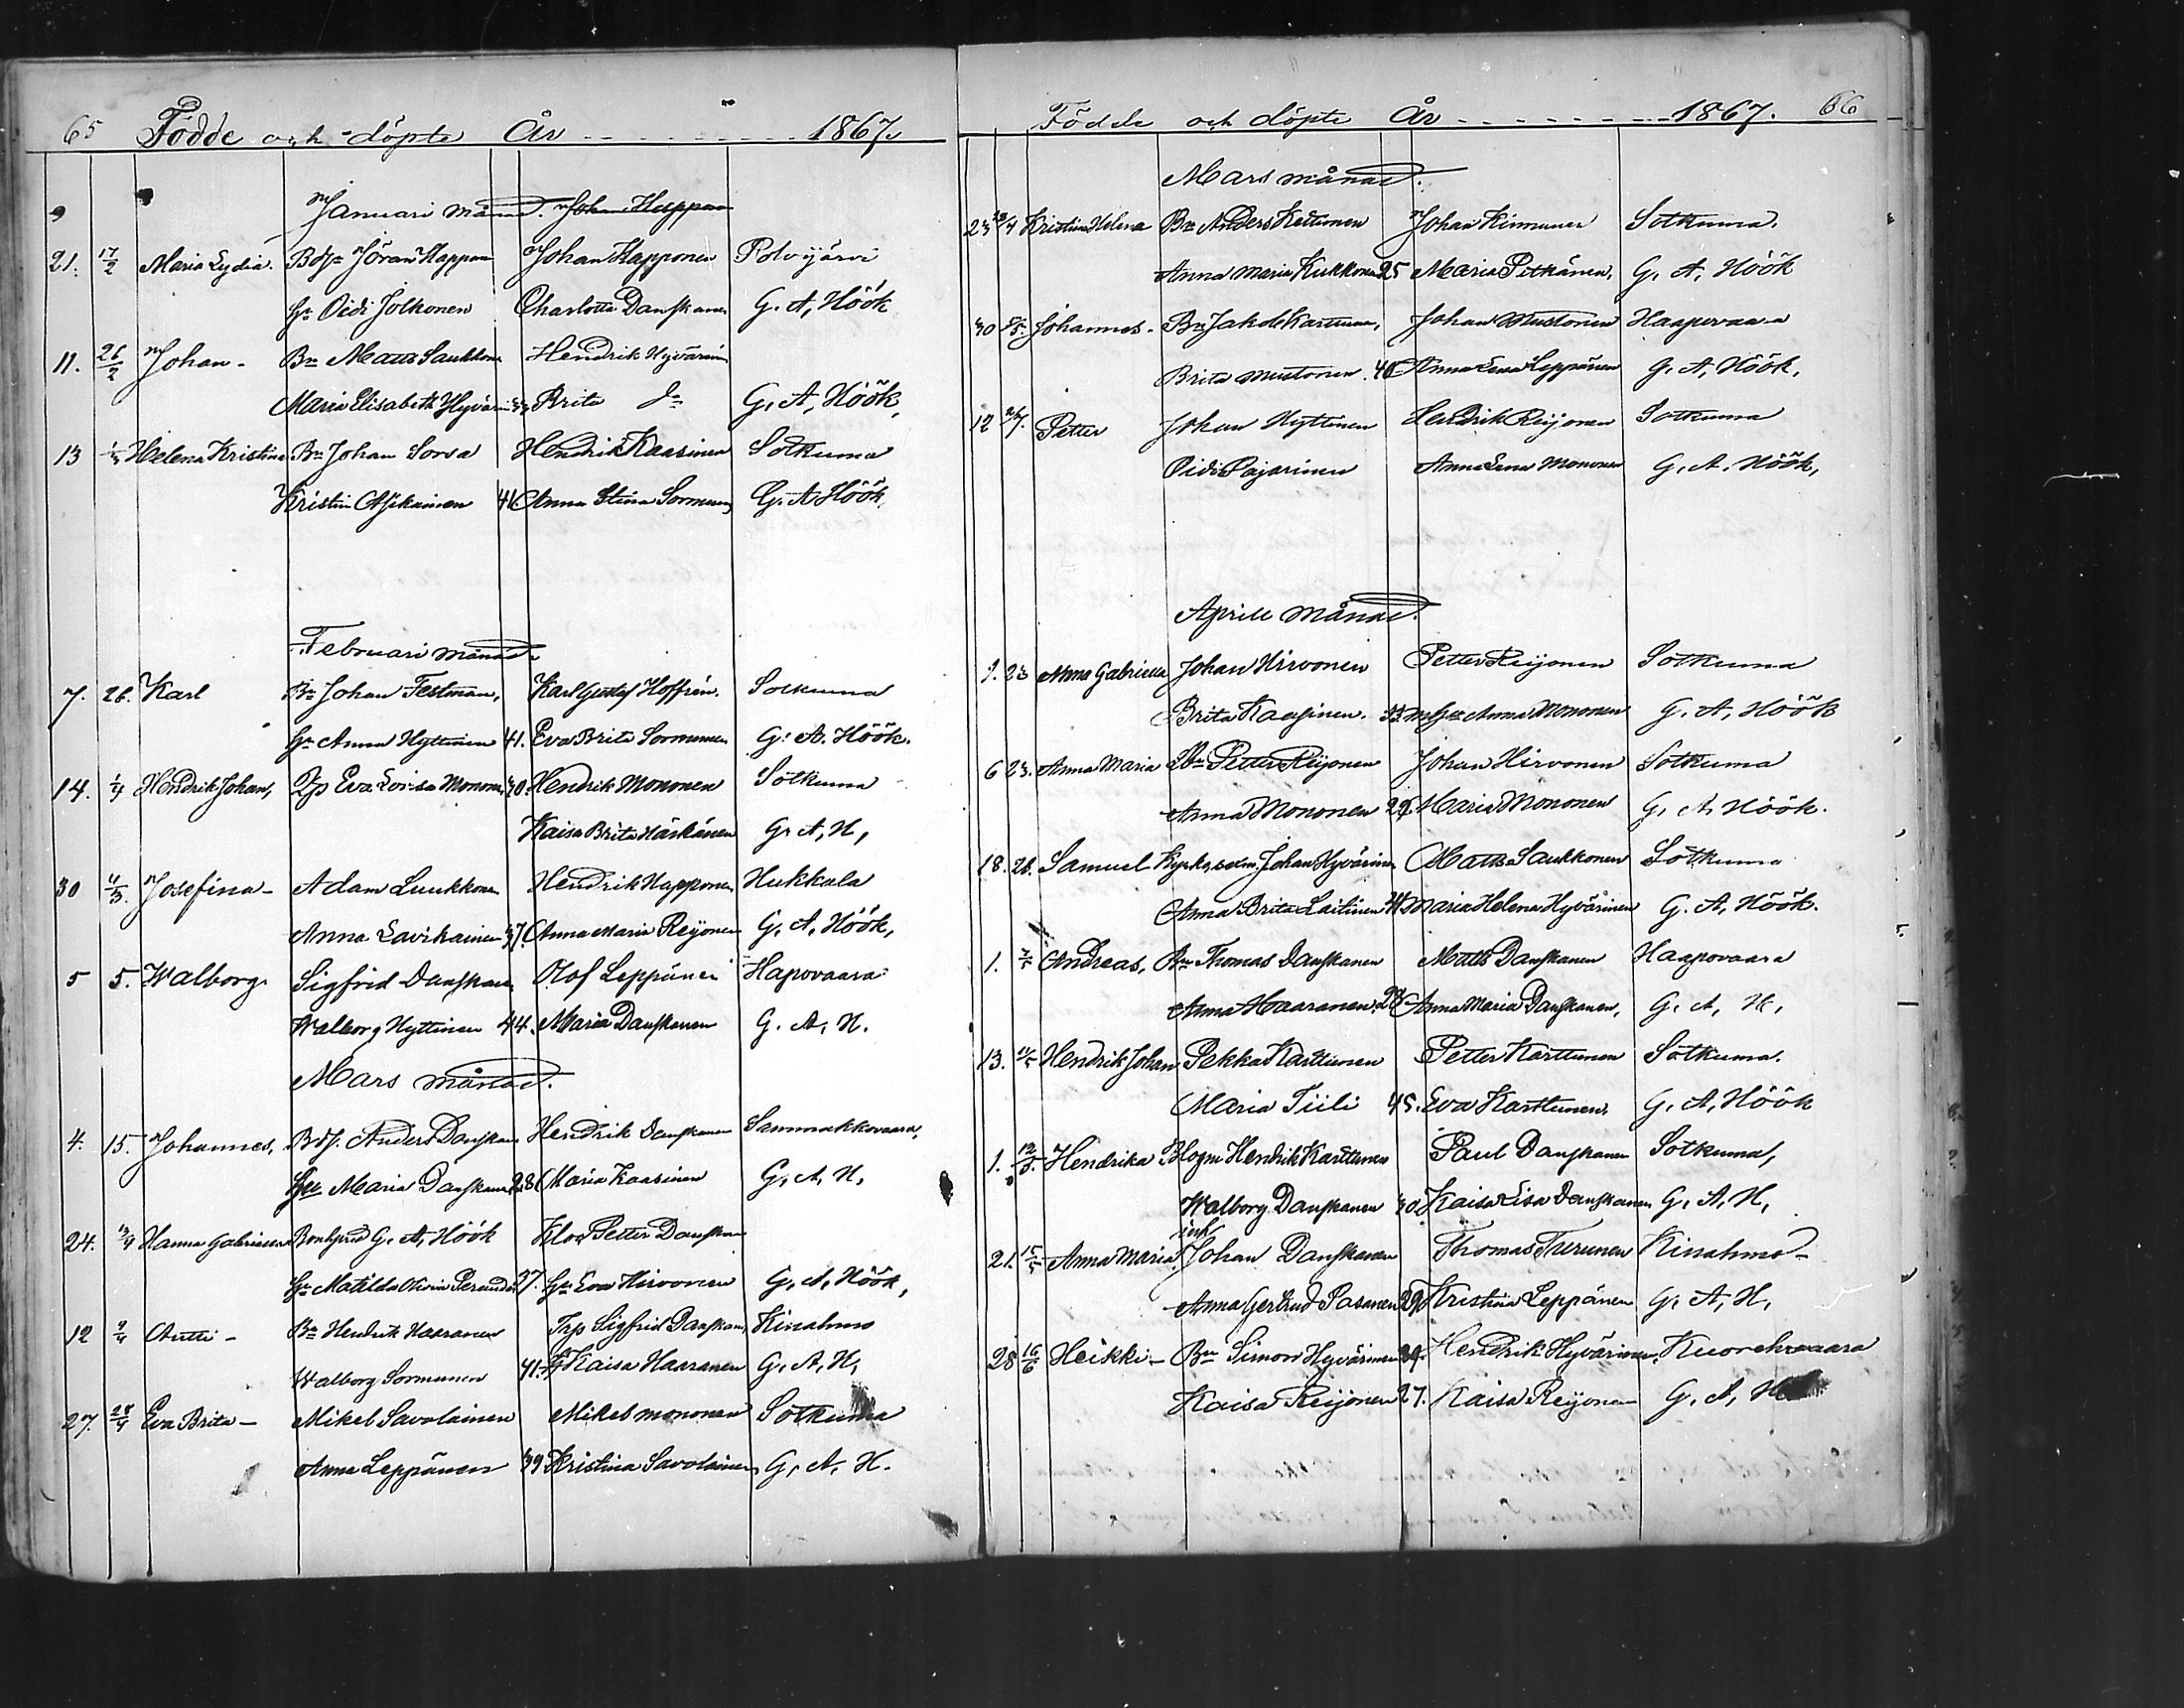 65 Födde och döpte År 1867.
Januari månad. Johan Happon
21. 17/2 Maria Lydia. Bdsn Jöran Happon Johan Happonen Polvijärvi
Hu Oidi Jolkonen Charlotta Danskanen G. A, Höök
11. 26/2 Johan - Bn Matts Saukkonen Hendrik Hyvärinen
Maria Elisabeth Hyvärin Brita do G. A, Höök,
13 Helena Kristina Bn Johan Sorsa Hendrik Kaasinen Sotkuma
Kristin Asikainen 41 Anna Stina Sormunen G. A Höök,
Februari månad.
7. 26. Karl Bn Johan Festman, Karl Gustaf Hoffrén. Sotkuma
Hu Anna Hyttinen 41. Eva Brita Sormunen G. A. Höök.
14. 1/4 Hendrik Johan, Eva Lovisa Mononen 30. Hendrik Mononen Sotkuma
Kaisa Brita Härkänen G. A, H,
30 11/3. Josefina - Adam Luukkonen Hendrik Happonen Hukkala
Anna Lavikainen 37. Anna Maria Reijonen G. A, Höök,
5 5. Walborg Sigfrid Danskanen Olof Leppänen Hapovaara
Walborg Hyttinen 44. Maria Danskanen G. A, H.
Mars månad.
4. 15. Johannes, Anders Danskanen Hendrik Danskanen Sammakkovaara,
Hu Maria Danskanen 28 Maria Kaasinen G, A, H,
24. Hanna Gabriella G. A, Höök Petter Danskanen
Hu Matilda Olivia 27. Hu Eva Hirvonen G, A, Höök,
12 Antti - Bn Hendrik Haaranen Sigfrid Danskanen Kinahmo
Walborg Sormunen 41. Kaisa Haaranen G, A, H,
27. 28/4 Eva Brita - Mikel Savolainen Mikel Mononen Sotkuma
Anna Leppänen 39 Kristina Savolainen G, A, H.
Födde och döpte År 1867. 66
Mars månad.
23 Kristina Helena Bn Anders Kettunen Johan Kinnunen Sotkuma.
Anna Maria Kukkonen 25 Maria Pitkänen, G, A, Höök
30 Johannes - Bn Jakob Karttunen, Johan Mustonen Haapovaara
Brita Mustonen 40 Anna Lena Leppänen G. A, Höök,
12 Petter Johan Hyttinen Hendrik Reijonen Sotkuma
Oidi Pajarinen Anna Lena Mononen G. A. Höök,
Aprill månad.
1. 23 Anna Gabriella Johan Hirvonen Petter Reijonen Sotkuma
Brita Kaasinen. 33 Anna Mononen G. A, Höök
6 23. Anna Maria Petter Reijonen Johan Hirvonen Sotkuma
Anna Mononen Maria Mononen G, A, Höök.
18. 26. Samuel Johan Hyvärinen Matts Saukkonen Sotkuma
Anna Brita Laitinen Maria Helena Hyvärinen G. A, Höök.
1. Andreas, Bn Thomas Danskanen Matts Danskanen Haapovaara
Anna Haaranen 28 Anna Maria Danskanen, G, A, H,
13. Hendrik Johan Pekka Karttunen Petter Karttunen Sotkuma.
Maria Tiili 45. Eva Karttunen, G, A, Höök
1. 12/5. Hendrika Hendrik Karttunen Paul Danskanen Sotkuma,
Walborg Danskanen 30 Kaisa Lisa Danskanen G, A, H,
21. 15/5 Anna Maria Johan Danskanen Thomas Turunen Kinahmo -
Anna Gertrud Sasanen 29 Kristina Leppänen G, A, H,
28 16/6 Heikki - Bn Simon Hyvärinen 39. Hendrik Hyvärinen, Kuorehvaara
Kaisa Reijonen 27. Kaisa Reijonen G, A, H